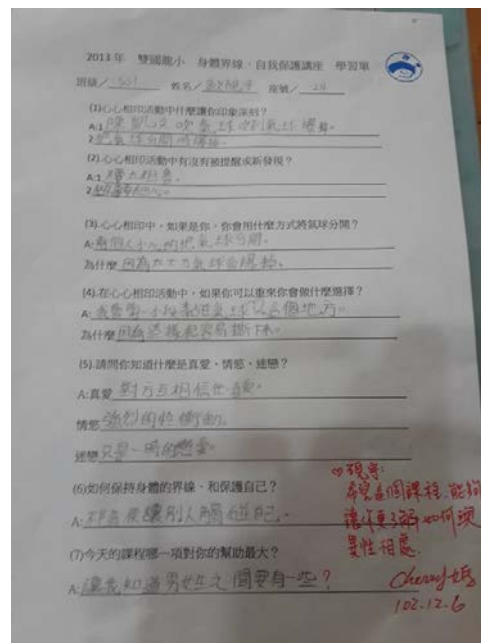 2013 年 雙國龍小 身體界線、自我保護講座 學習單
班級／501 姓名／ 座號／24
(1)心心相印活動中什麼讓你印象深刻?
A:1 吹氣球吹到氣球爆
2把氣球分開時爆掉。
(2)心心相印活動中有沒有被提醒或新發現?
A:1
2
(3)心心相印中,如果是你,你會用什麼方式將氣球分開?
A:兩個人小心的把氣球分開。
為什麼 因為太大力氣球會爆掉。
(4)在心心相印活動中,如果你可以重來你會做什麼選擇?
A: 我會剪一小段 氣球 個地方。
為什麼 因為這樣 容易撕下來。
(5)請問你知道什麼是真愛、情慾、迷戀?
A:真愛 對方互相信任 喜歡。
情慾 強烈的性衝動。
迷戀 只是一時的戀愛。
(6)如何保持身體的界線、和保護自己?
A: 不要 讓別人觸碰自己。
(7)今天的課程哪一項對你的幫助最大?
A: 讓我知道男女生之間要有一些?
♡硯守:
希望這個課程,能夠
讓你更了解如何與
異性相處.
Cherry媽
102.12.6